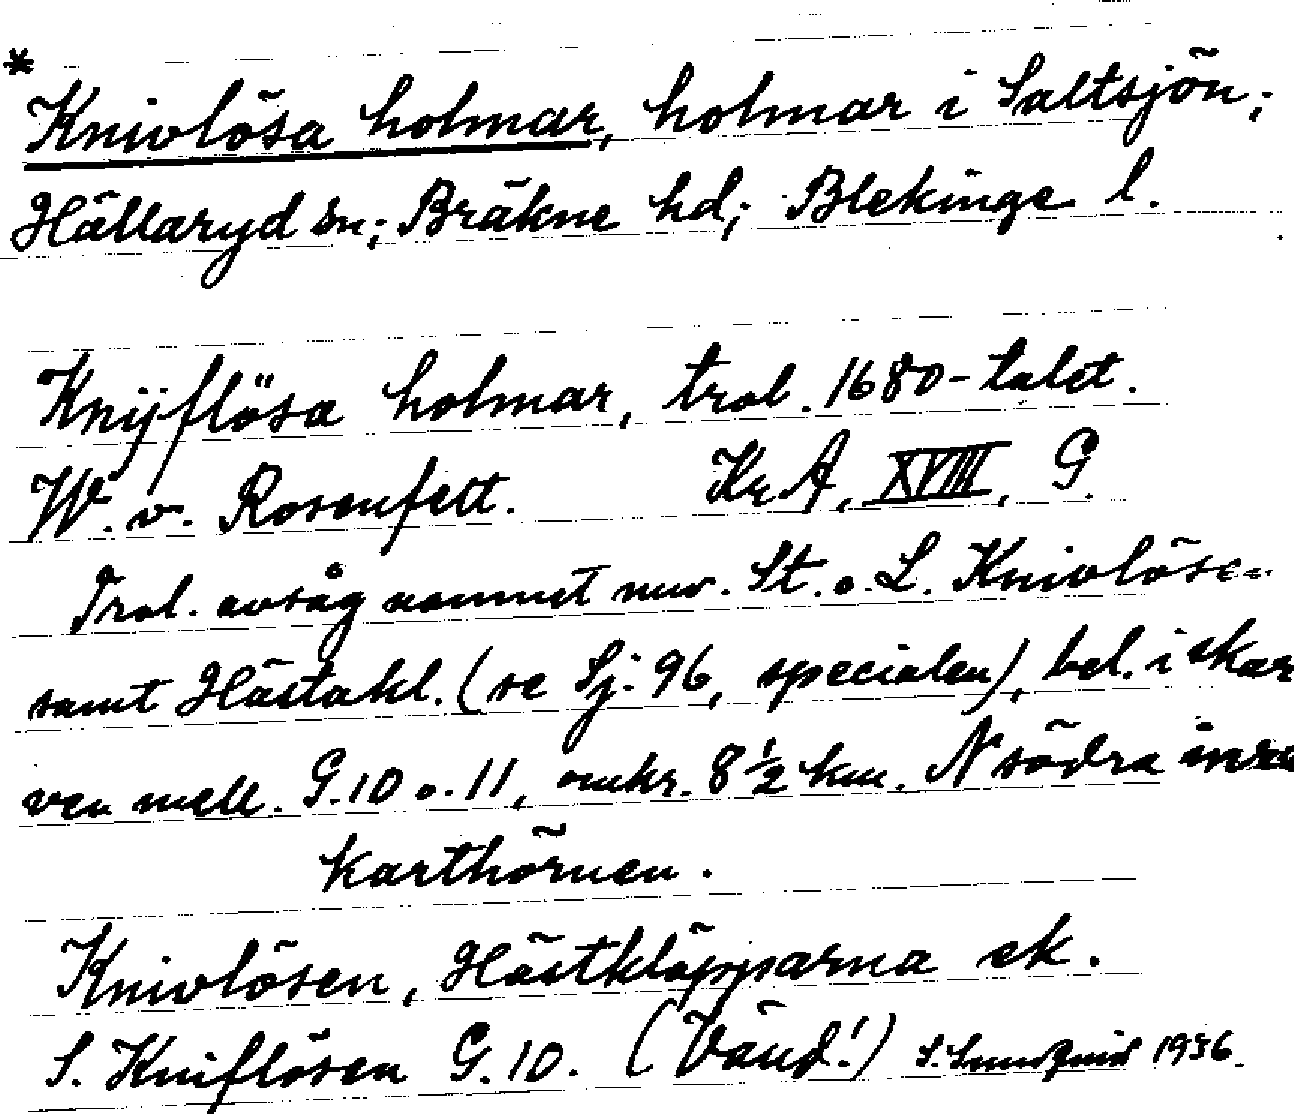 *
Knivlösa holmar, holmar i Saltsjön;
Hällaryd sn; Bräkne hd; Blekinge l.
Knijflösa holmar, trol. 1680-talet.
W. v. Rosenfelt. KrA, XVIII, G.
Trol. avsåg namnet nuv. St. o. L. Knivlösen
samt Hästakl. (se Sj. 96, specialen), bel. i skar
ven mell. G.10 o. 11, omkr. 8 ½ km. N södra inre
karthörnen.
Knivlösen, Hästkläpparna ek.
S. Kniflösen G.10. (Vänd!) S. 1936.